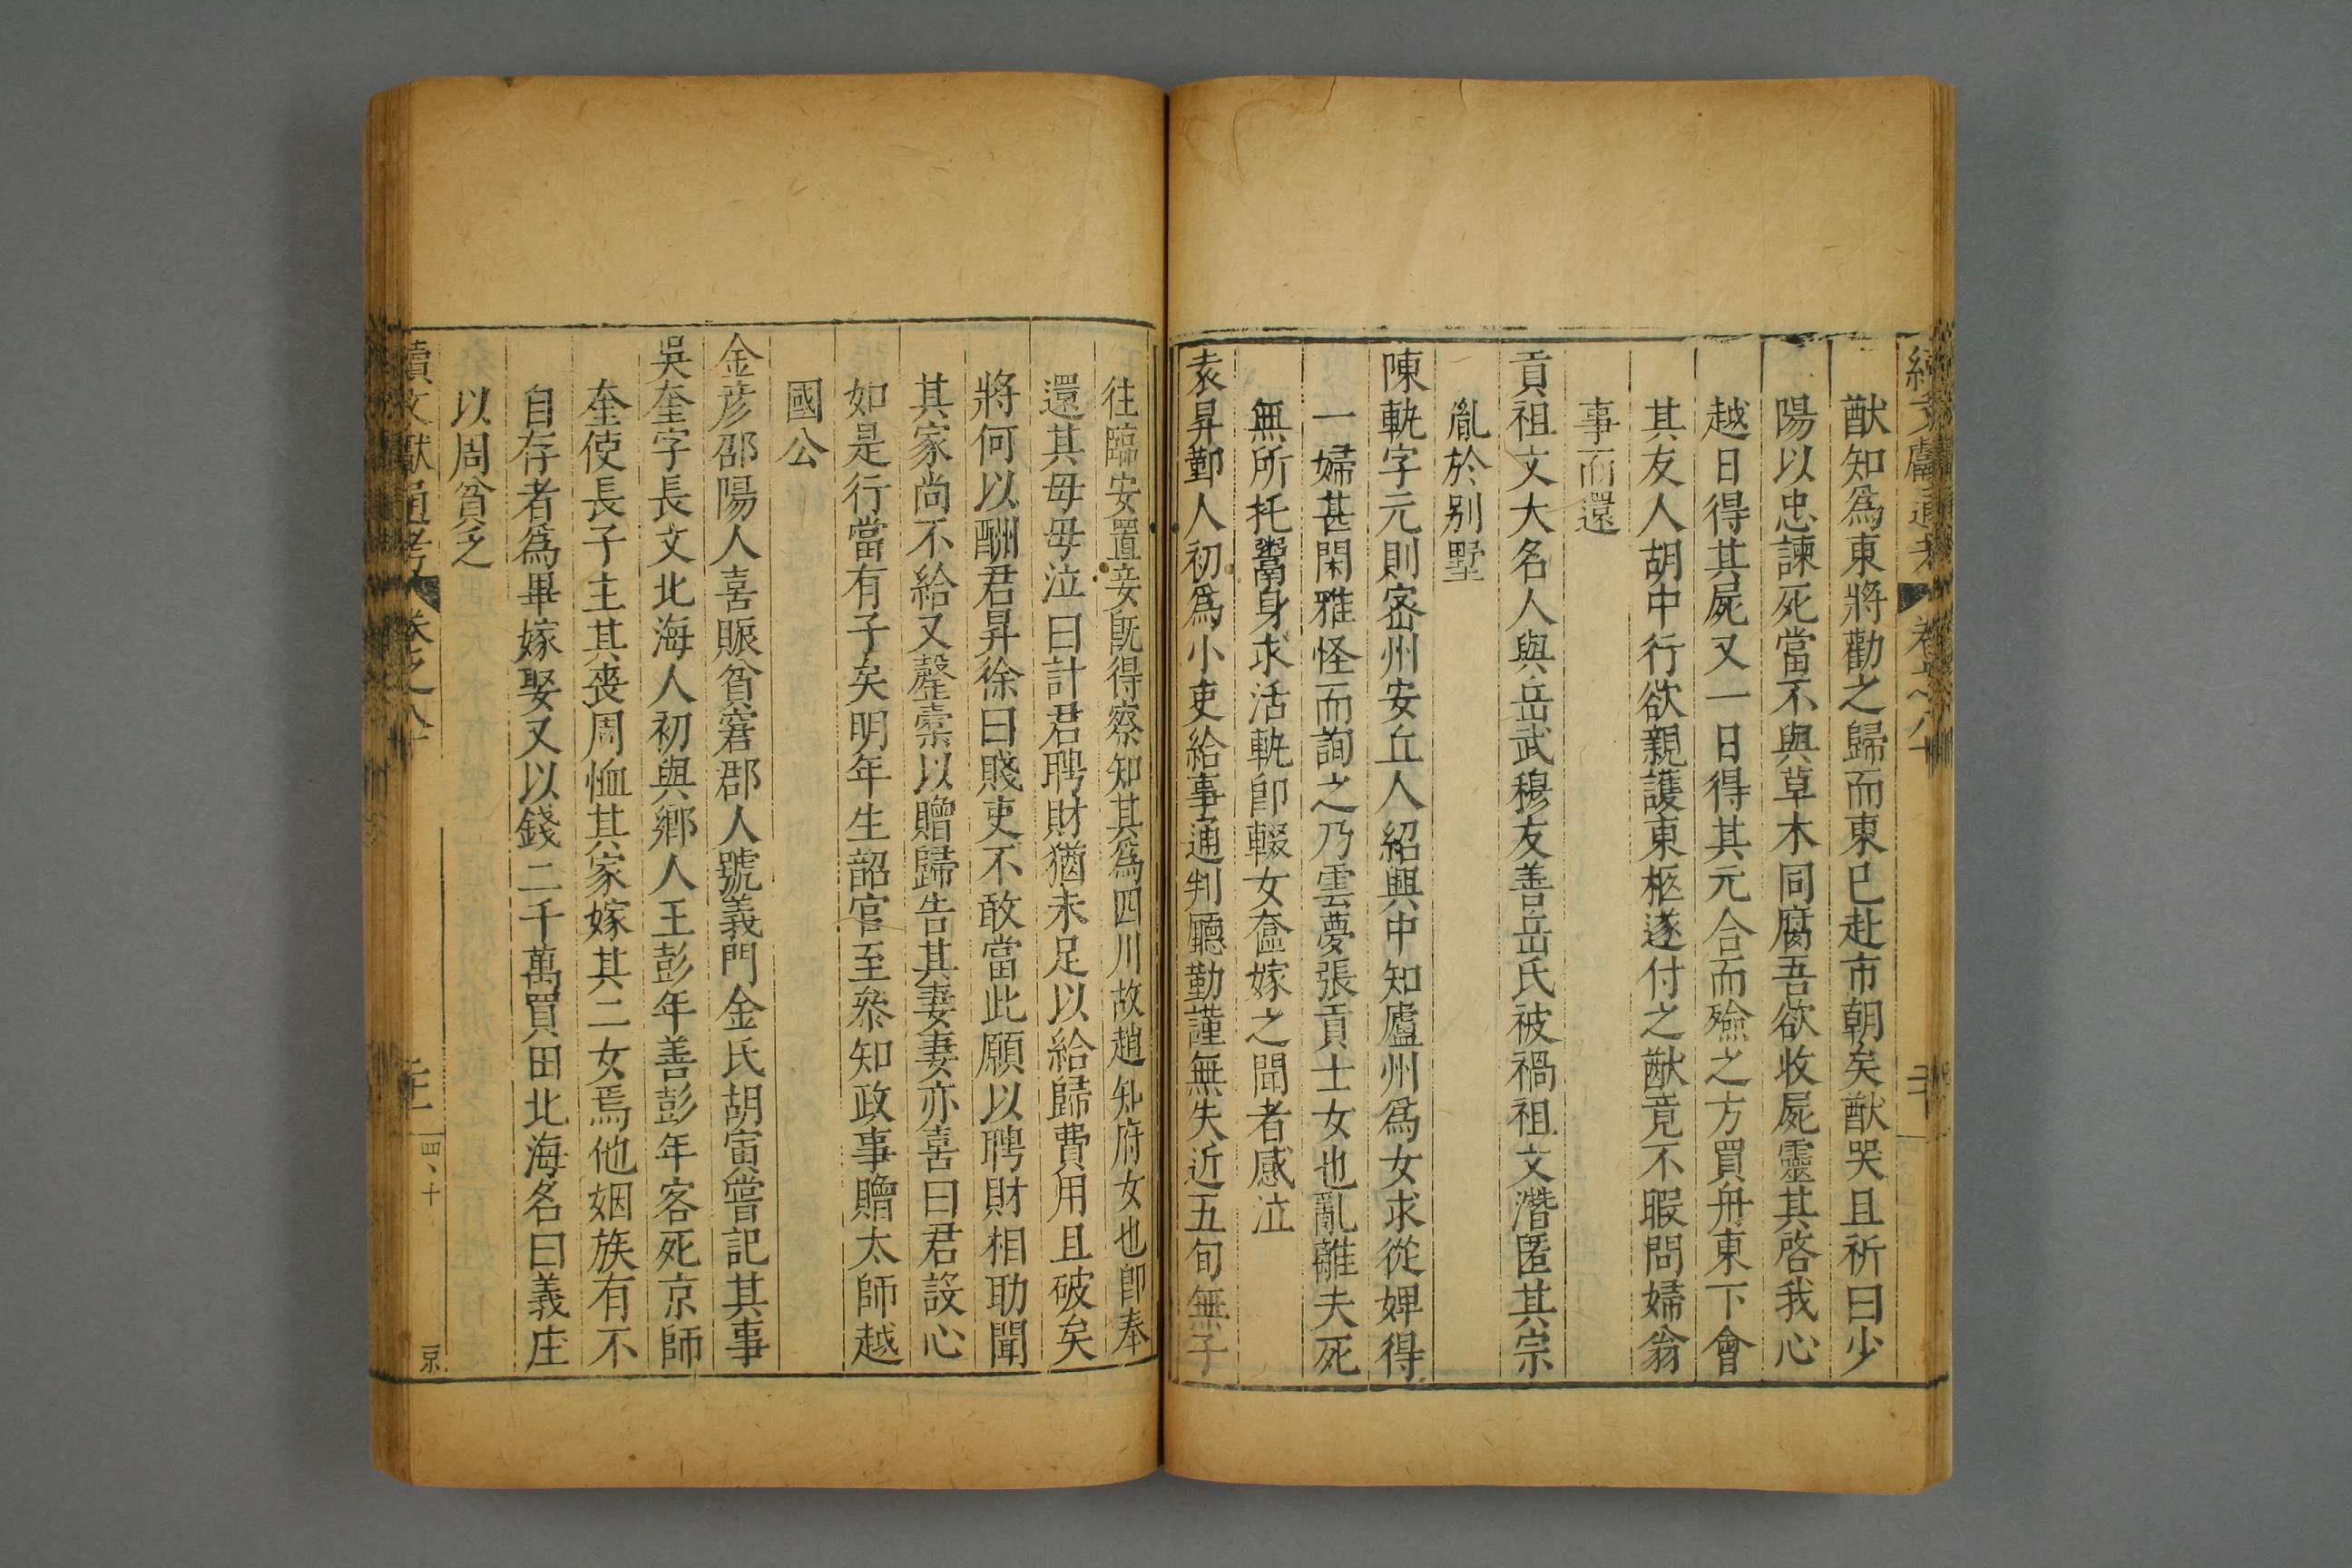 續文獻通考 卷之八十
猷知爲東將勸之歸而東已赴市朝矣猷哭且祈曰少
陽以忠諫死當不與草木同腐吾欲收屍靈其啓我心
越日得其屍又一日得其元合而殮之方買舟東下會
其友人胡中行欲親護東柩遂付之猷竟不暇問婦翁
事而還
貢祖文大名人與岳武穆友善岳氏被禍祖文潛匿其宗
胤於别墅
陳軏字元則宻州安丘人紹興中知廬州爲女求從婢得
一婦甚閑雅怪而詢之乃雲夢張貢士女也亂離夫死
無所托鬻身求活軏卽輟女奩嫁之聞者感泣
袁昇鄞人初爲小吏給事通判廳勤謹無失近五旬無子
往臨安置妾旣得察知其爲四川故趙知府女也卽奉
還其母母泣曰計君聘財猶未足以給歸費用且破矣
將何以酬君昇徐曰賤吏不敢當此願以聘財相助聞
其家尚不給又罄橐以贈歸告其妻妻亦喜曰君設心
如是行當有子矣明年生韶官至叅知政事贈太師越
國公
金彦邵陽人喜賑貧窘郡人號義門金氏胡寅嘗記其事
吳奎字長文北海人初與鄉人王彭年善彭年客死京師
奎使長子主其喪周恤其家嫁其二女焉他姻族有不
自存者爲畢嫁娶又以錢二千萬買田北海名曰義庄
以周貧乏
續文獻通考 卷之八十 四、十 京